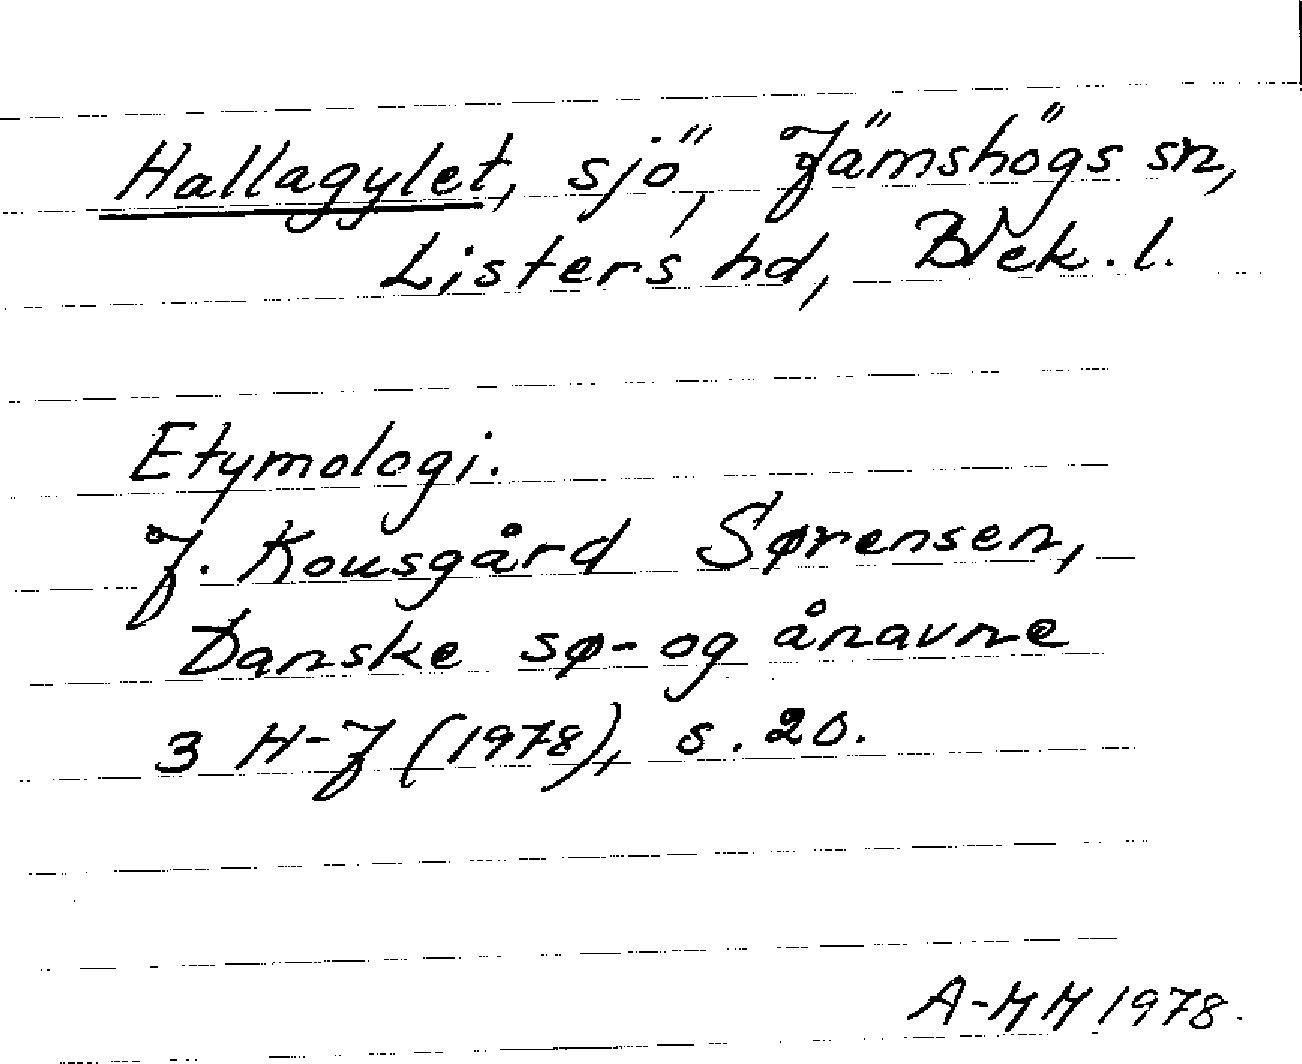 Hallagylet, sjö, Jämshögs sn,
Listers hd, Blek. l.
Etymologi.
J. Kousgård Sørensen,
Danske sø- og ånavne
3 H-J (1978), s. 20.
A-MM 1978.